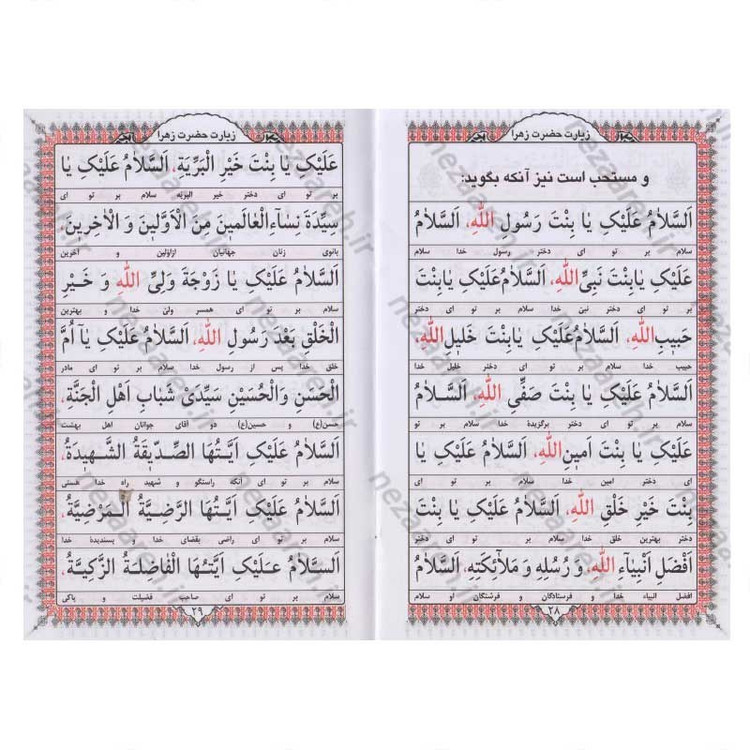 زیارت حضرت زهرا
و مستحب است نیز آنکه بگوید:
اَلسَّلاٰمُ عَلَیْکِ یٰا بِنْتَ رَسُولِ اللّٰهِ، اَلسَّلاٰمُ
سلام بر تو ای دختر رسول خدا سلام
عَلَیْکِ یٰابِنْتَ نَبِیِّ اللّٰهِ، اَلسَّلاٰمُ عَلَیْکِ یٰابِنْتَ
بر تو ای دختر نبی خدا سلام بر تو ای دختر
حَبیٖبِ اللّٰهِ، اَلسَّلاٰمُ عَلَیْکِ یٰابِنْتَ خَلیٖلِ اللّٰهِ،
حبیب خدا سلام بر تو ای دختر خلیل خدا
اَلسَّلاٰمُ عَلَیْکِ یٰا بِنْتَ صَفِیِّ اللّٰهِ، اَلسَّلاٰمُ
سلام بر تو ای دختر برگزیدهٔ خدا سلام
عَلَیْکِ یٰا بِنْتَ اَمیٖنِ اللّٰهِ، اَلسَّلاٰمُ عَلَیْکِ یٰا
بر تو ای دختر امین خدا سلام بر تو ای
بِنْتَ خَیْرِ خَلْقِ اللّٰهِ، اَلسَّلاٰمُ عَلَیْکِ یٰا بِنْتَ
دختر بهترین خلق خدا سلام بر تو ای دختر
اَفْضَلِ اَنْبِیٰآءِ اللّٰهِ، وَ رُسُلِهِ وَ مَلاٰئِکَتِهِ، اَلسَّلاٰمُ
افضل انبیاء خدا و فرستادگان و فرشتگان او سلام
۲۸
زیارت حضرت زهرا
عَلَیْکِ یٰا بِنْتَ خَیْرِ الْبَرِیَّةِ، اَلسَّلاٰمُ عَلَیْکِ یٰا
بر تو ای دختر خیر البریه سلام بر تو ای
سَیِّدَةَ نِسٰآءِ الْعٰالَمیٖنَ مِنَ الْاَوَّلیٖنَ وَ الْاٰخِریٖنَ،
بانوی زنان جهانیان ازاولین و آخرین
اَلسَّلاٰمُ عَلَیْکِ یٰا زَوْجَةَ وَلِیِّ اللّٰهِ وَ خَیْرِ
سلام بر تو ای همسر ولیّ خدا و بهترین
الْخَلْقِ بَعْدَ رَسُولِ اللّٰهِ، اَلسَّلاٰمُ عَلَیْکِ یٰآ اُمَّ
خلق خدا پس از رسول خدا سلام بر تو ای مادر
الْحَسَنِ وَالْحُسَیْنِ سَیِّدَیْ شَبٰابِ اَهْلِ الْجَنَّةِ،
حسن(ع) و حسین(ع) دو آقای جوانان اهل بهشت
اَلسَّلاٰمُ عَلَیْکِ اَیَّتُهَا الصِّدّیٖقَةُ الشَّهیٖدَةُ،
سلام بر تو ای آنکه راستگو و شهید راه خدا هستی
اَلسَّلاٰمُ عَلَیْکِ اَیَّتُهَا الرَّضِیَّةُ الْمَرْضِیَّةُ،
سلام بر تو ای راضی بقضای خدا و پسندیدهٔ خدا
اَلسَّلاٰمُ عَلَیْکِ اَیَّتُهَا الْفٰاضِلَةُ الزَّکِیَّةُ،
سلام بر تو ای صاحب فضیلت و پاکی
۲۹
nezaareh.ir